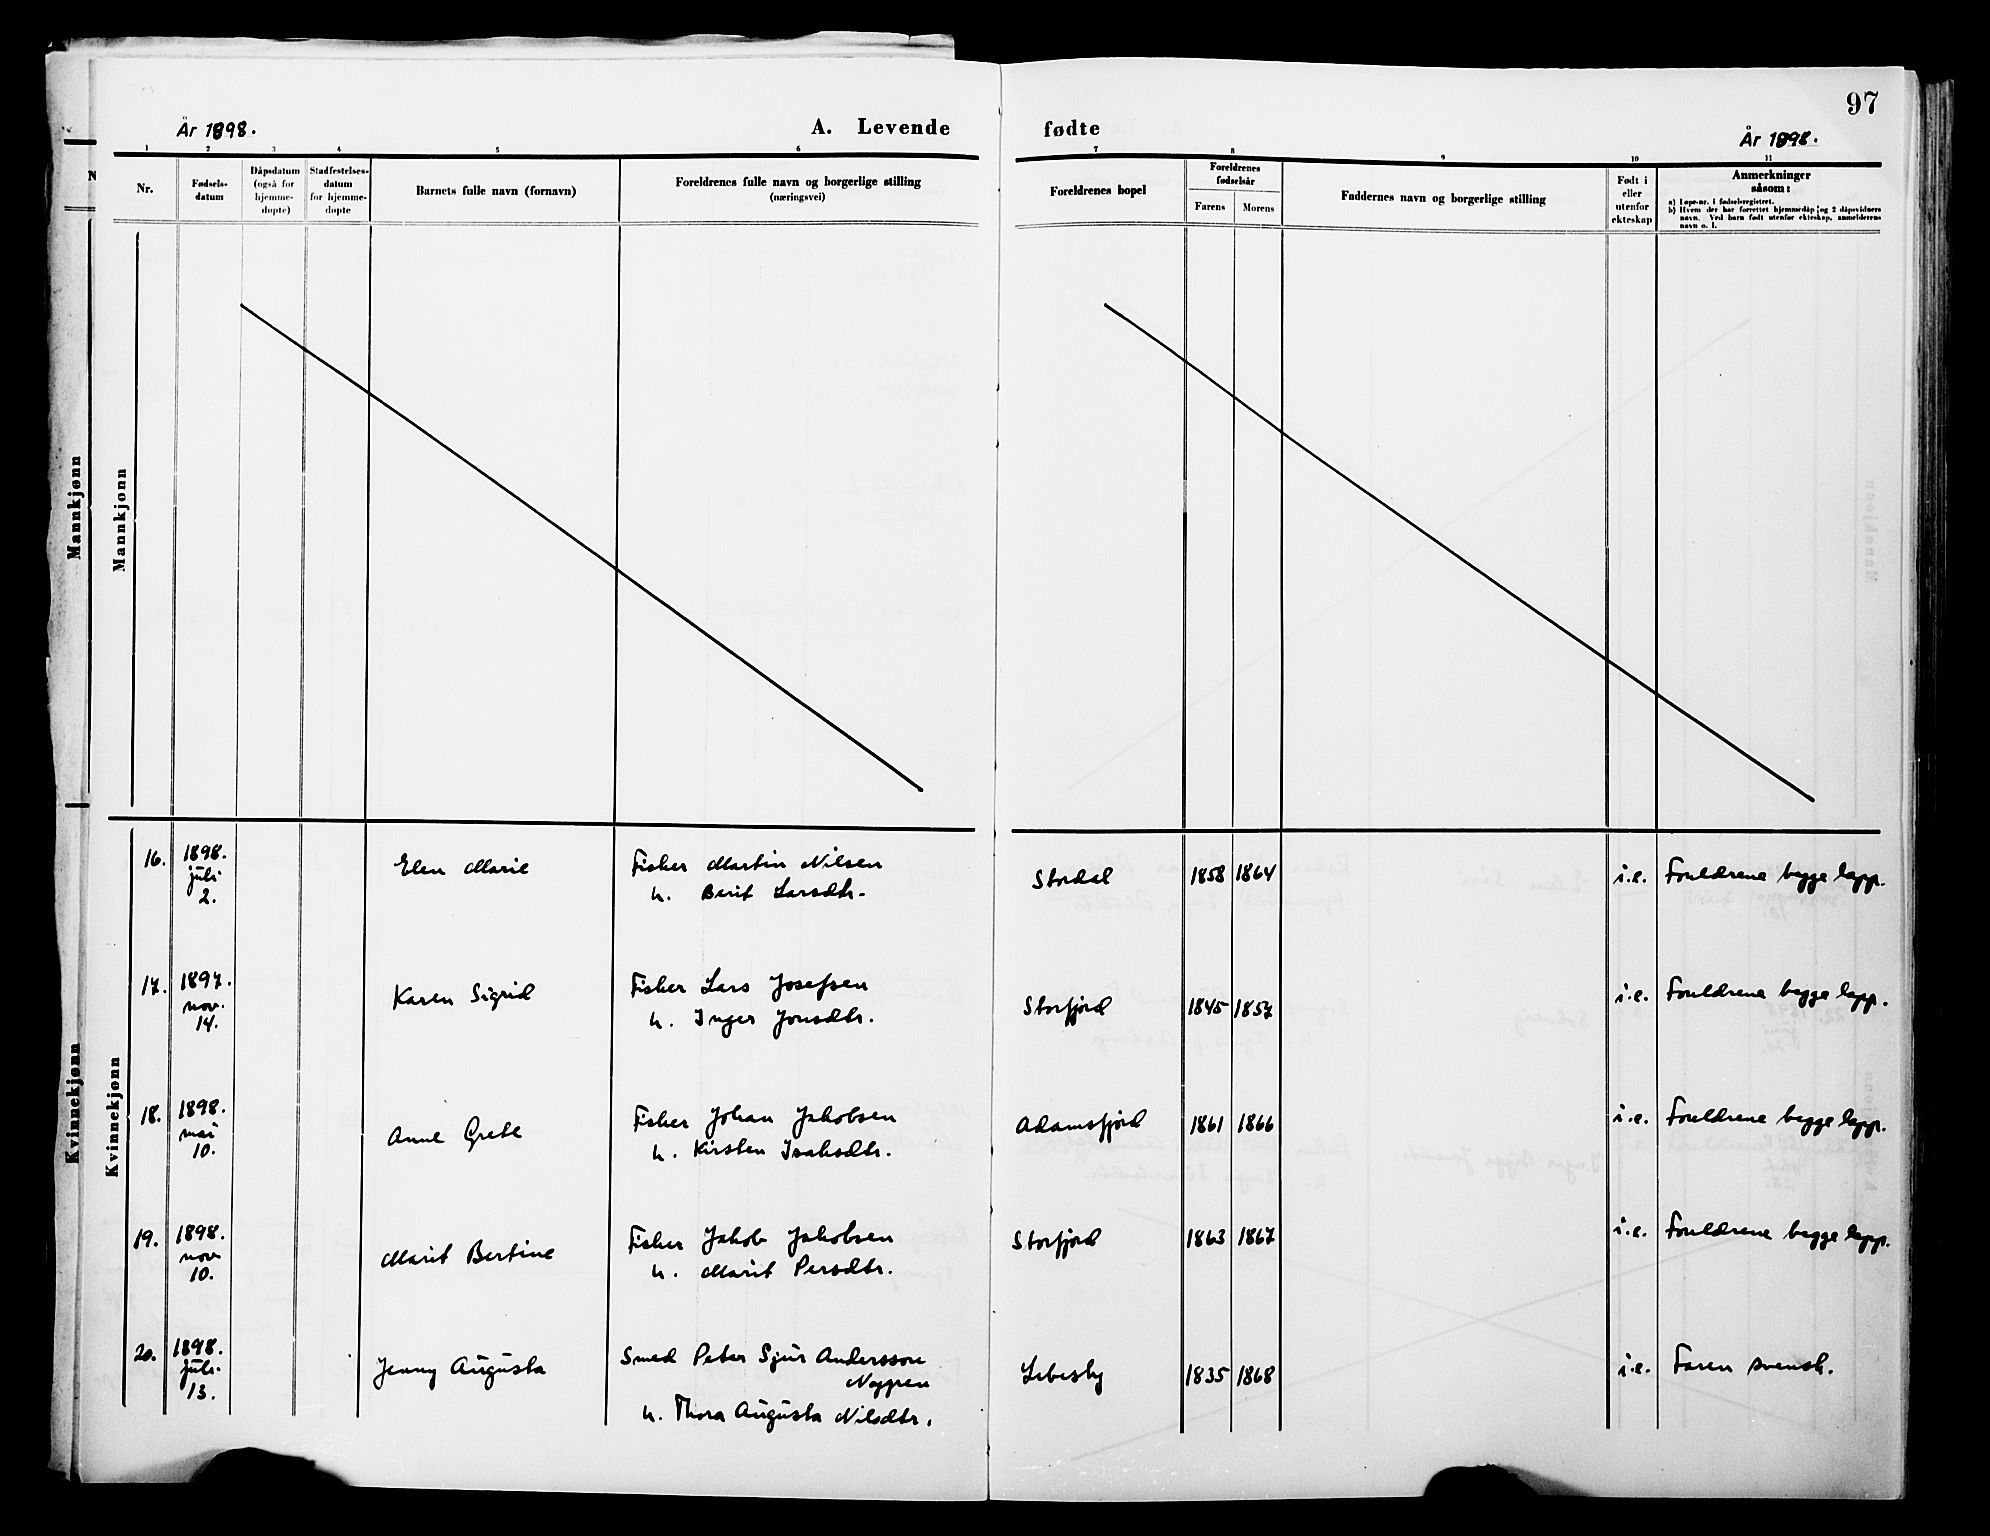 97
År 1898.
A. Levende fødte
År 1898.
1 2 3 4 5 6 7 8 9 10 11
Nr.
Fødsels-
datum
Dåpsdatum
(også for
hjemme-
døpte)
Stadfestelses-
datum
for hjemme-
døpte
Barnets fulle navn (fornavn)
Foreldrenes fulle navn og borgerlige stilling
(næringsvei)
Foreldrenes bopel
Foreldrenes
fødselsår
Farens Morens
Faddernes navn og borgerlige stilling
Født i
eller
utenfor
ekteskap
Anmerkninger
såsom:
a) Løpe-nr. i fødselsregistret.
b) Hvem der har forrettet hjemmedåp og 2 dåpsvidners
navn. Ved barn født utenfor ekteskap, anmelderens
navn o. l.
Mannkjønn
Mannkjønn
Kvinnekjønn
Kvinnekjønn
16. 1898. juli 2.
Elen Marie
Fisker Martin Nilsen
h. Berit Larsdtr.
Stordal 1858 1864 i.e. Foreldrene begge lapp.
17. 1897. nov. 14.
Karen Sigrid
Fisker Lars Josefsen
h. Inger Jonsdtr.
Storfjord 1845 1857 i.e. Foreldrene begge lapp.
18. 1898. mai 10.
Anne Grete
Fisker Johan Jakobsen
h. Kirsten Isaksdtr.
Adamsfjord 1861 1866 i.e. Foreldrene begge lapp.
19. 1898. nov. 10.
Marit Bertine
Fisker Jakob Jakobsen
h. Marit Persdtr.
Storfjord 1863 1867 i.e. Foreldrene begge lapp.
20. 1898. juli. 13.
Jenny Augusta
Smed Peter Sjur Anderssøn
Nygren
h. Thora Augusta Nilsdtr.
Lebesby 1835 1868 i.e. Faren svensk.